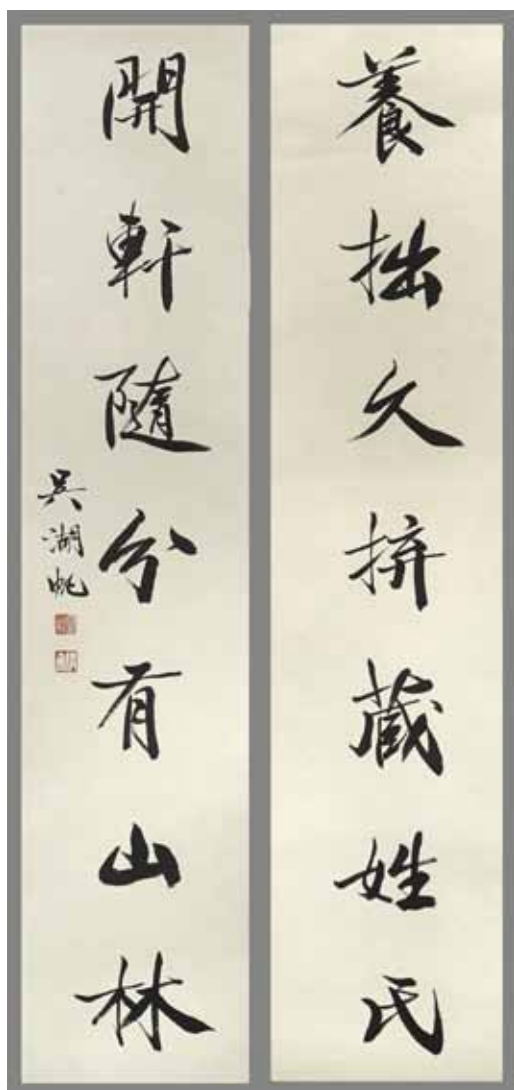 養拙久拚藏姓氏
開軒隨分有山林
吳湖帆